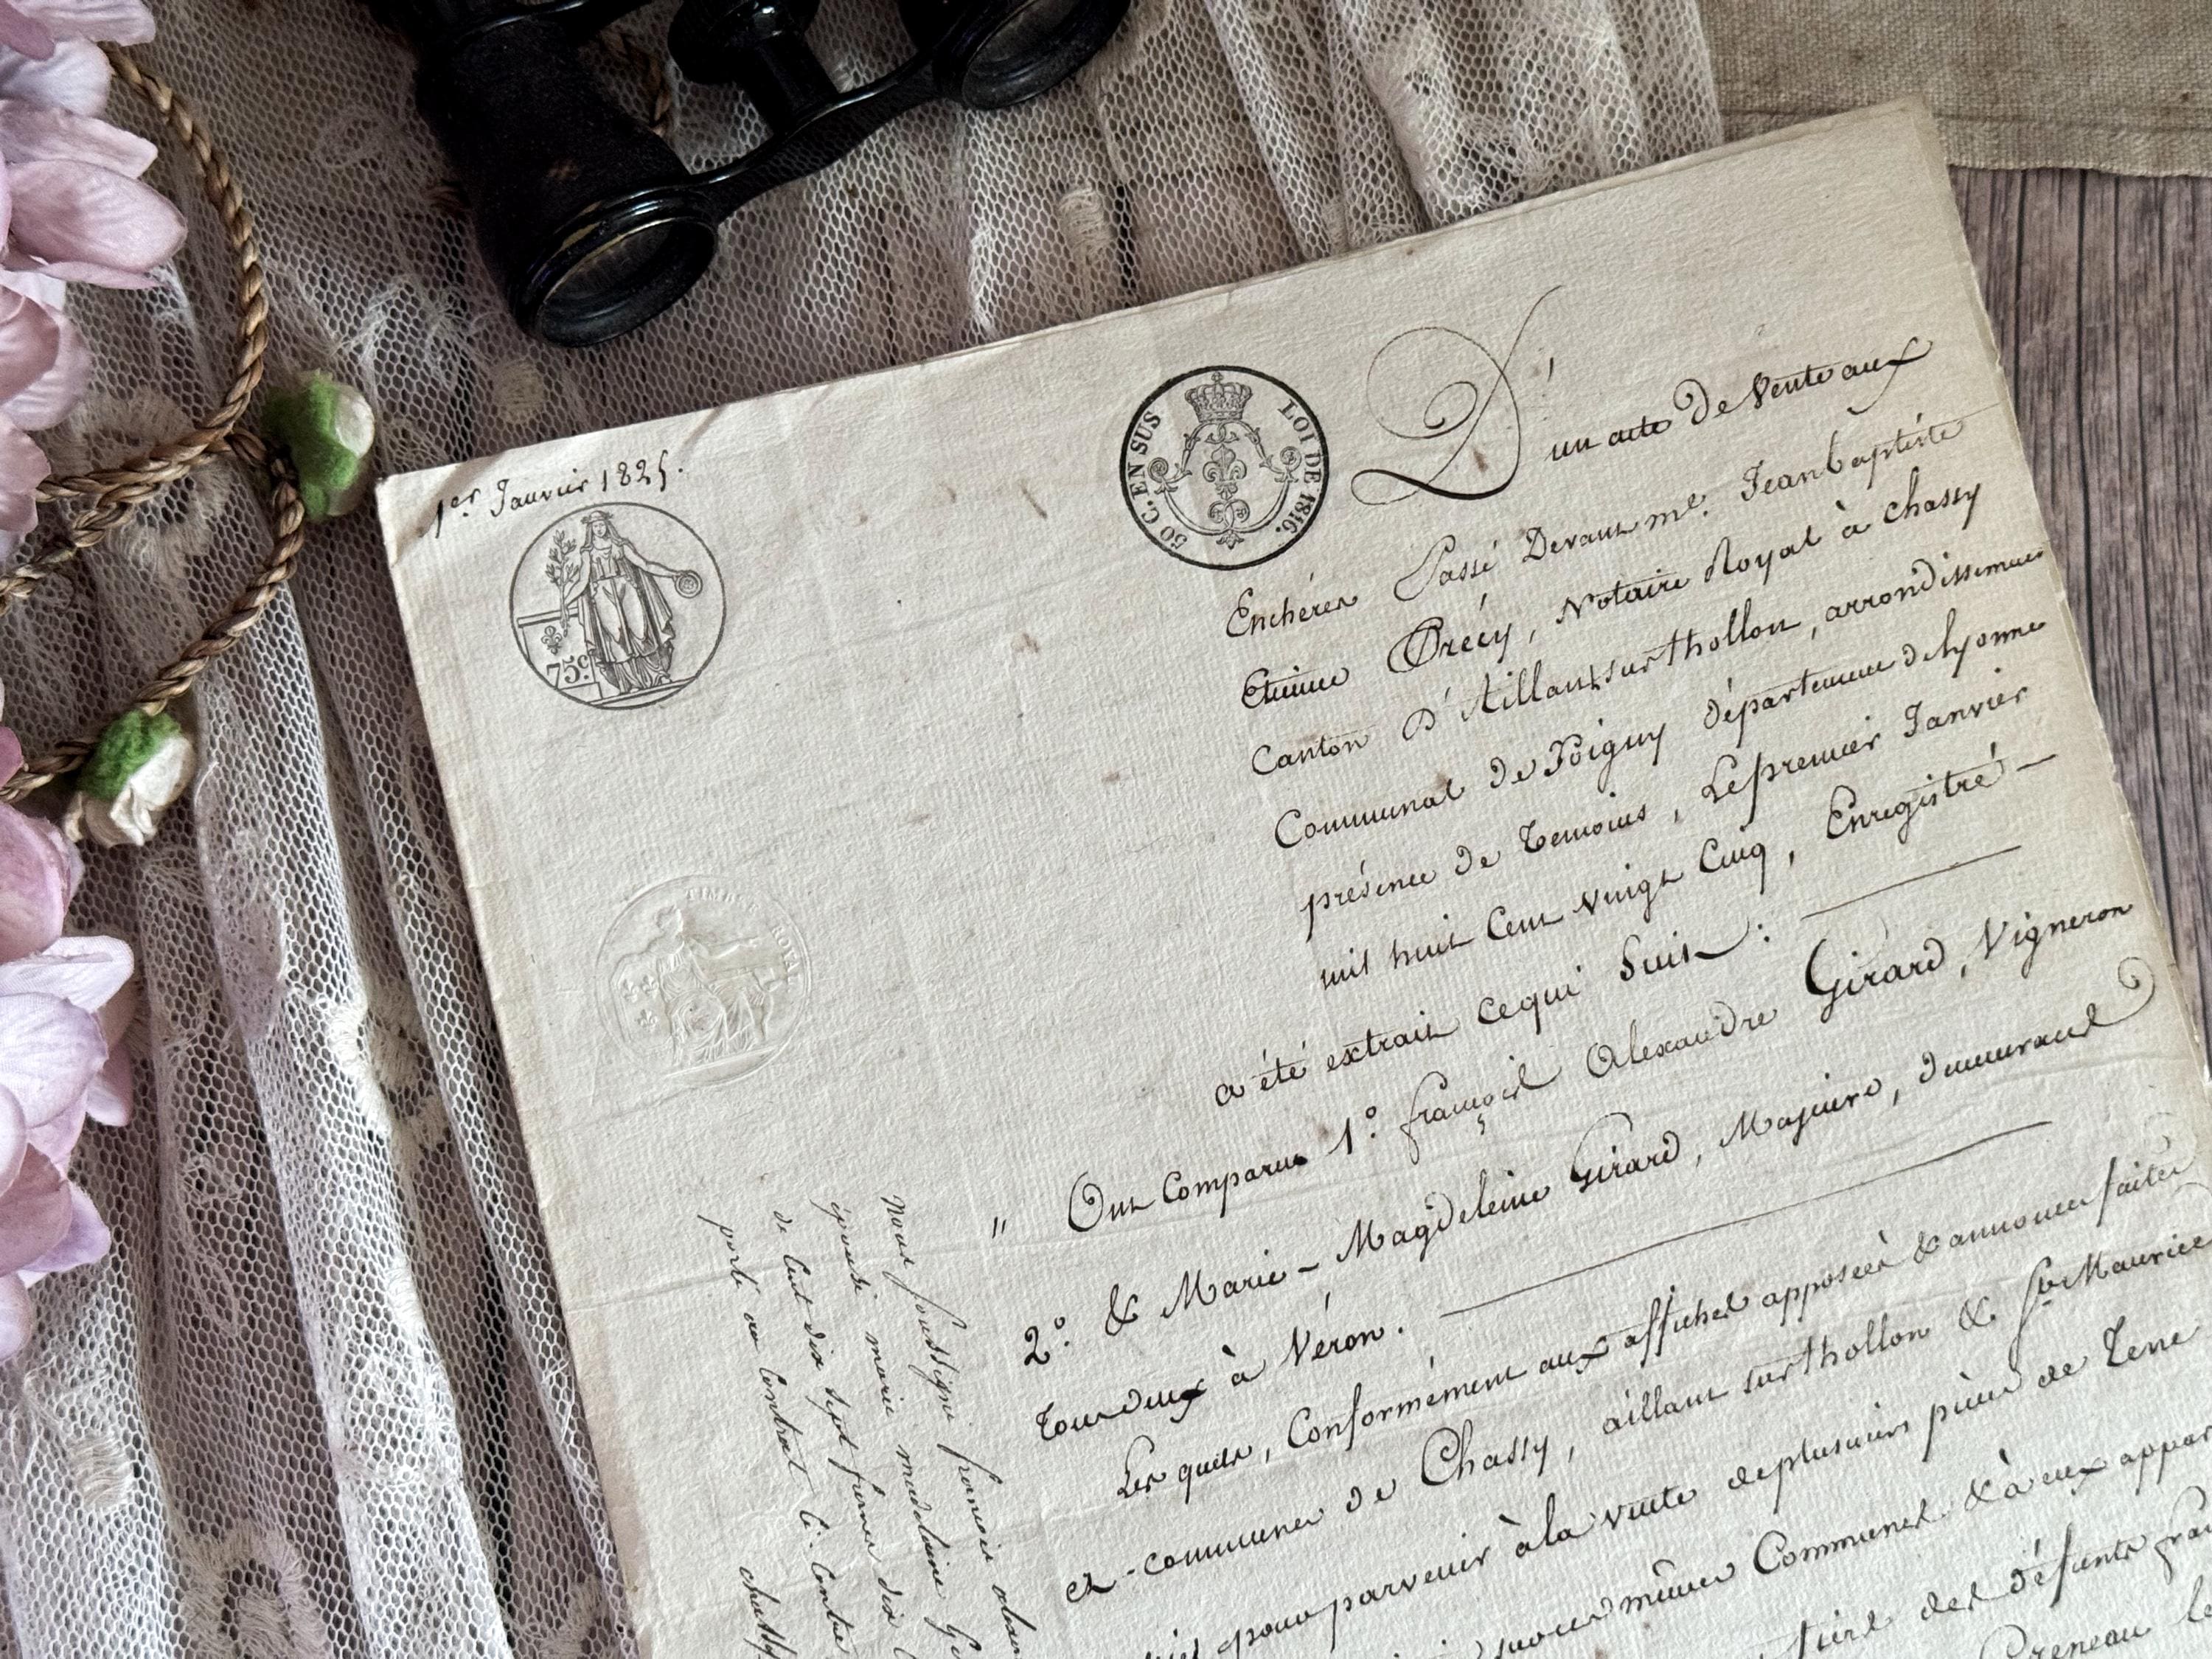 1er. Janvier 1825.
50 C. EN SUS
LOI DE 1816.
75c
TIMBRE ROYAL
D'un acte De Vente aux
Enchères Passé Devant me. Jean baptiste
Etienne Précy, Notaire Royal à Chassy
Canton D'Aillant sur thollon, arrondissement
Communal de Joigny département de lyonne
présence de Temoins, Le premier Janvier
mil huit Cent vingt Cinq, Enregistré —
a été extrait ce qui Suit :
" Ont Comparu 1º. françois Alexandre Girard, Vigneron
2º. & Marie - Magdeleine Girard, Majeure, demeurant
tous deux à Véron.
Les quels, Conformément aux affiches apposées & annonces faites
ès-communes de Chassy, aillant sur thollon & St. Maurice
pour parvenir à la vente de plusieurs pièces de Terre
mêmes Communes & à eux appar
des défunts fra
Creneau le
Nous soussigné francois alexan
épouse marie madelaine Gi
de Cent dix sept francs dix
porté au Contrat
chassy